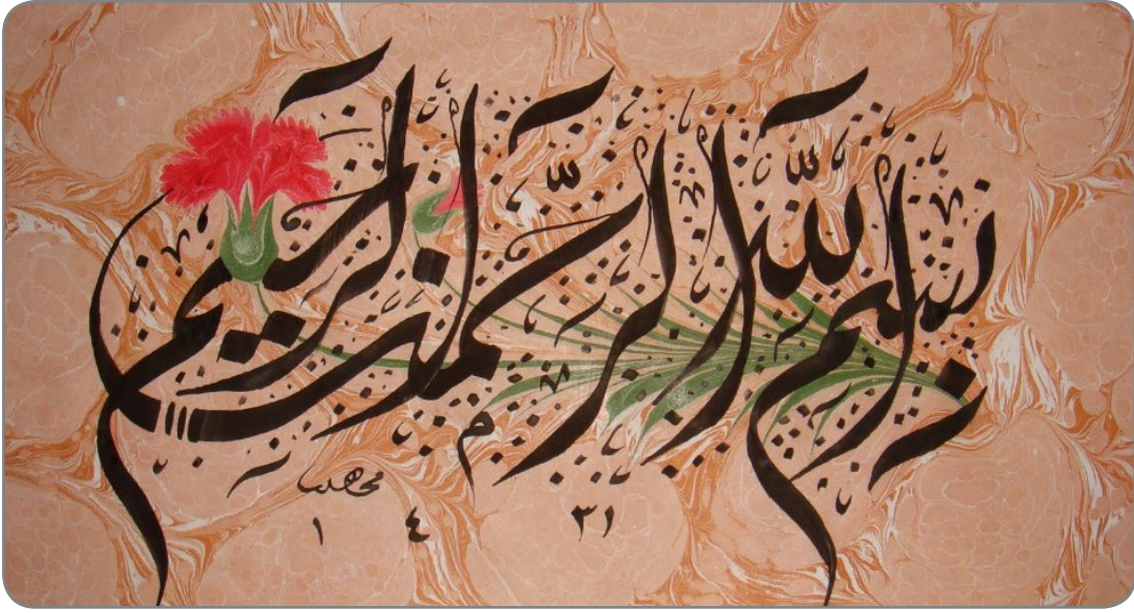 بسم الله الرحمن الرحيم
١ ٤ ٣١